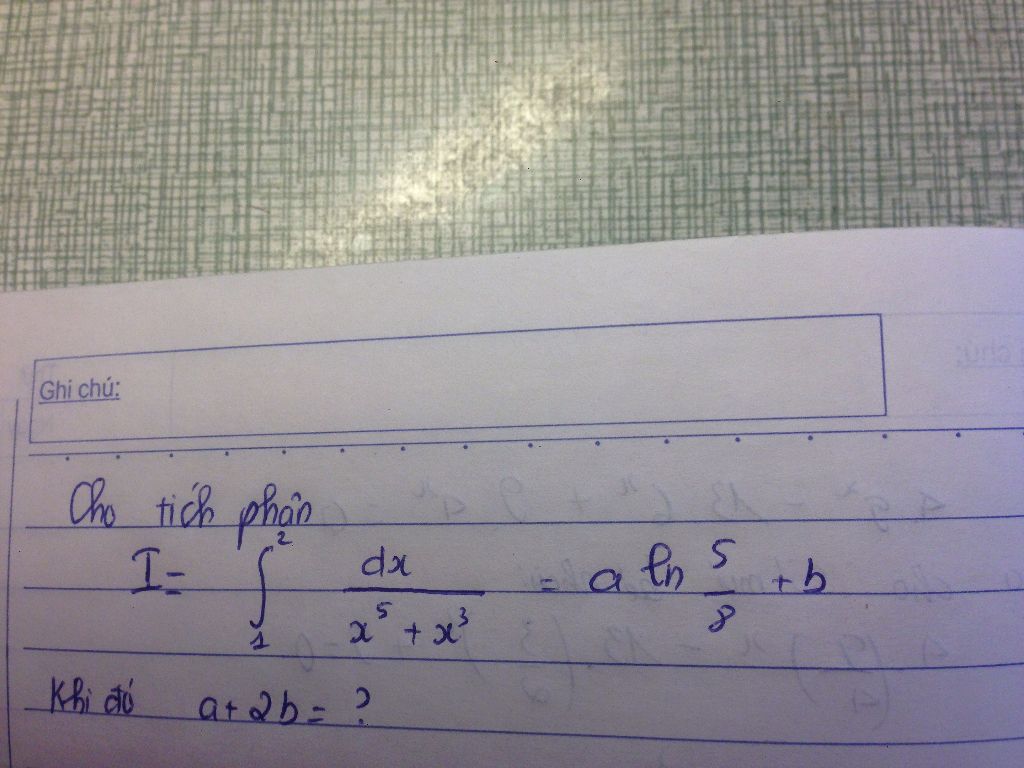 Ghi chú:
Cho tích phân
I = ∫₁² dx / (x⁵ + x³) = a ln 5/8 + b
Khi đó a + 2b = ?